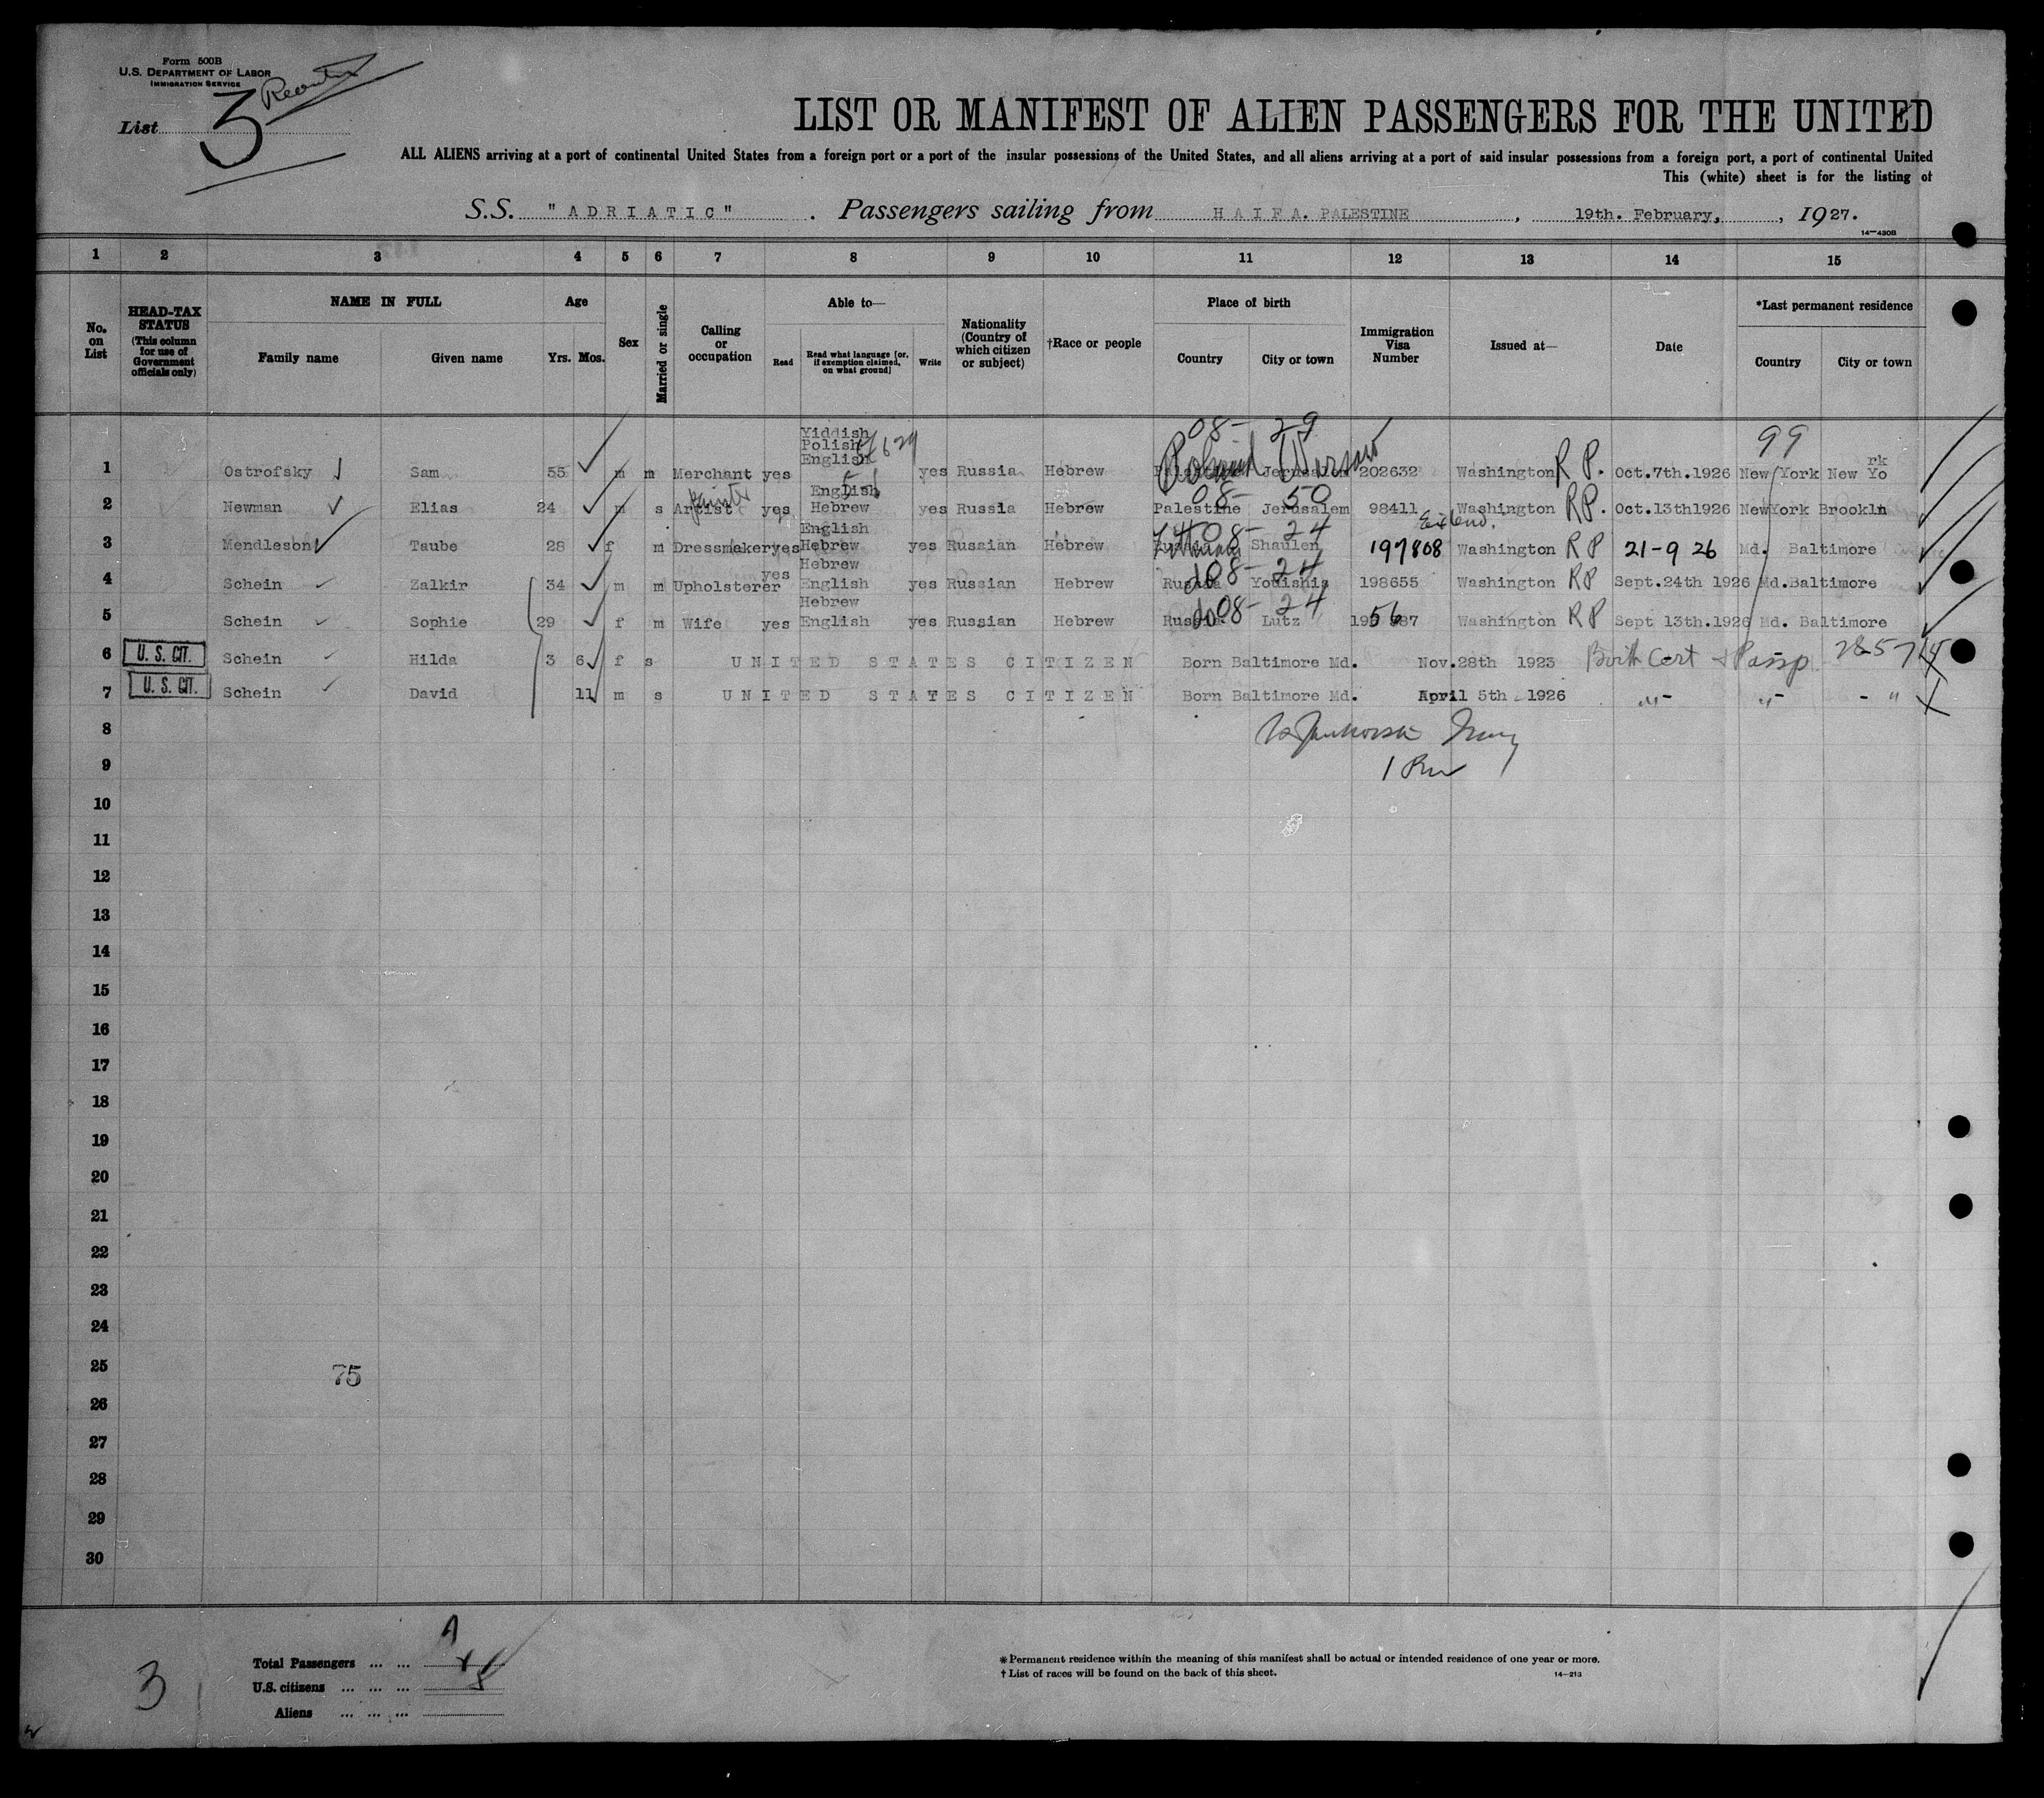 Form 500B
U.S. DEPARTMENT OF LABOR
IMMIGRATION SERVICE
List 3
LIST OR MANIFEST OF ALIEN PASSENGERS FOR THE UNITED
ALL ALIENS arriving at a port of continental United States from a foreign port or a port of the insular possessions of the United States, and all aliens arriving at a port of said insular possessions from a foreign port, a port of continental United
This (white) sheet is for the listing of
S.S. "ADRIATIC". Passengers sailing from HAIFA. PALESTINE, 19th. February, , 1927.
14—430B
1 2 3 4 5 6 7 8 9 10 11 12 13 14 15
No. on List
HEAD-TAX STATUS (This column for use of Government officials only)
NAME IN FULL
Family name Given name
Age
Yrs. Mos.
Sex
Married or single
Calling or occupation
Able to—
Read Read what language [or, if exemption claimed, on what ground] Write
Nationality (Country of which citizen or subject)
†Race or people
Place of birth
Country City or town
Immigration Visa Number
Issued at—
Date
*Last permanent residence
Country City or town
08- 29 99
1 Ostrofsky Sam 55 m m Merchant yes Yiddish Polish English yes Russia Hebrew Palestine Jerusalem Poland Warsaw 202632 Washington R P. Oct.7th.1926 New York New York
08- 50
2 Newman Elias 24 m s Artist painter yes English Hebrew yes Russia Hebrew Palestine Jerusalem 98411 Washington RP. Oct.13th1926 NewYork Brookln
08- 24 Extend.
3 Mendleson Taube 28 f m Dressmaker yes English Hebrew yes Russian Hebrew Shaulen 197808 Washington RP 21-9 26 Md. Baltimore
do 08- 24
4 Schein Zalkir 34 m m Upholsterer yes Hebrew English yes Russian Hebrew Russia Youishis 198655 Washington RP Sept.24th 1926 Md.Baltimore
do 08- 24
5 Schein Sophie 29 f m Wife yes Hebrew English yes Russian Hebrew Russia Lutz 195687 Washington RP Sept 13th.1926 Md. Baltimore
6 U. S. CIT. Schein Hilda 3 6 f s UNITED STATES CITIZEN Born Baltimore Md. Nov.28th 1923 Birth Cert + Passp.
7 U. S. CIT. Schein David 11 m s UNITED STATES CITIZEN Born Baltimore Md. April 5th 1926 -"- -"- -"
8
9
10
11
12
13
14
15
16
17
18
19
20
21
22
23
24
25 75
26
27
28
29
30
3
Total Passengers ... ...
U.S. citizens ... ... ...
Aliens ... ... ...
*Permanent residence within the meaning of this manifest shall be actual or intended residence of one year or more.
†List of races will be found on the back of this sheet. 14—213